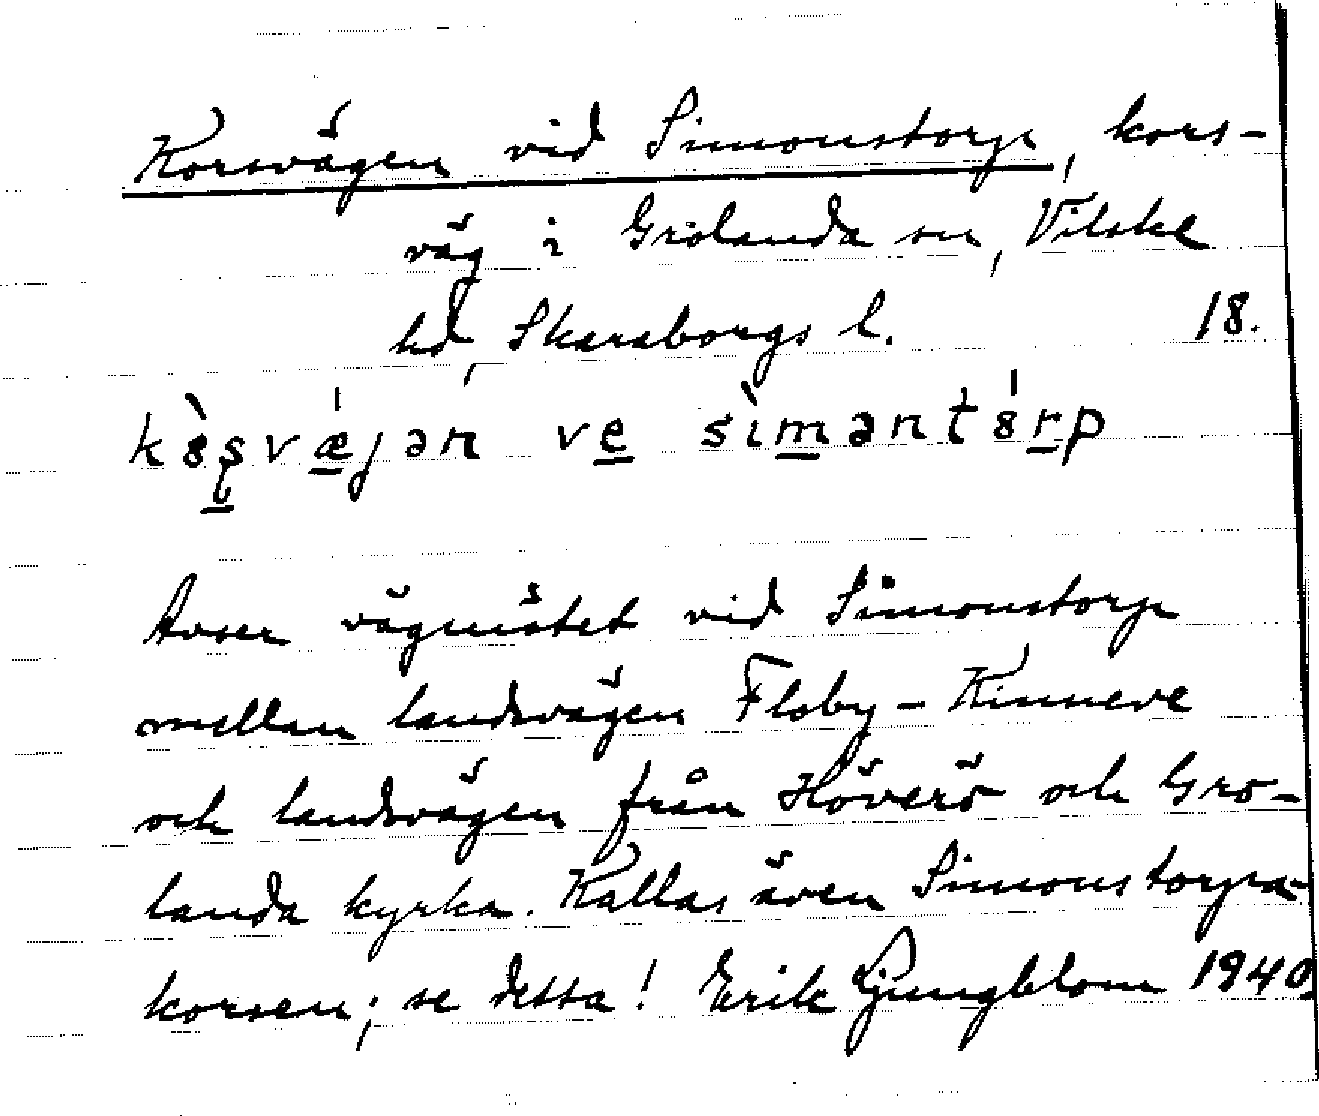 Korsvägen vid Simonstorp, kors-
väg i Grolanda sn, Vilske
hd, Skaraborgs l. 18.
kȍșvǽjan ve sìmantórp
Avser vägmötet vid Simonstorp
mellan landsvägen Floby - Kinneve
och landsvägen från Höverö och Gro-
landa kyrka. Kallas även Simonstorpa-
korsen; se detta! Erik Ljungblom 1940.